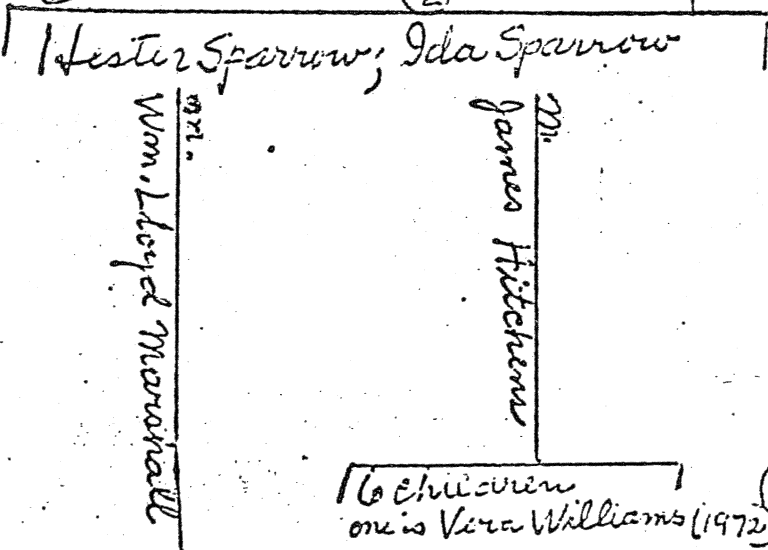 Hester Sparrow; Ida Sparrow
m.
Wm. Lloyd Marshall
m.
James Hitchens
6 children
one is Vera Williams (1972)